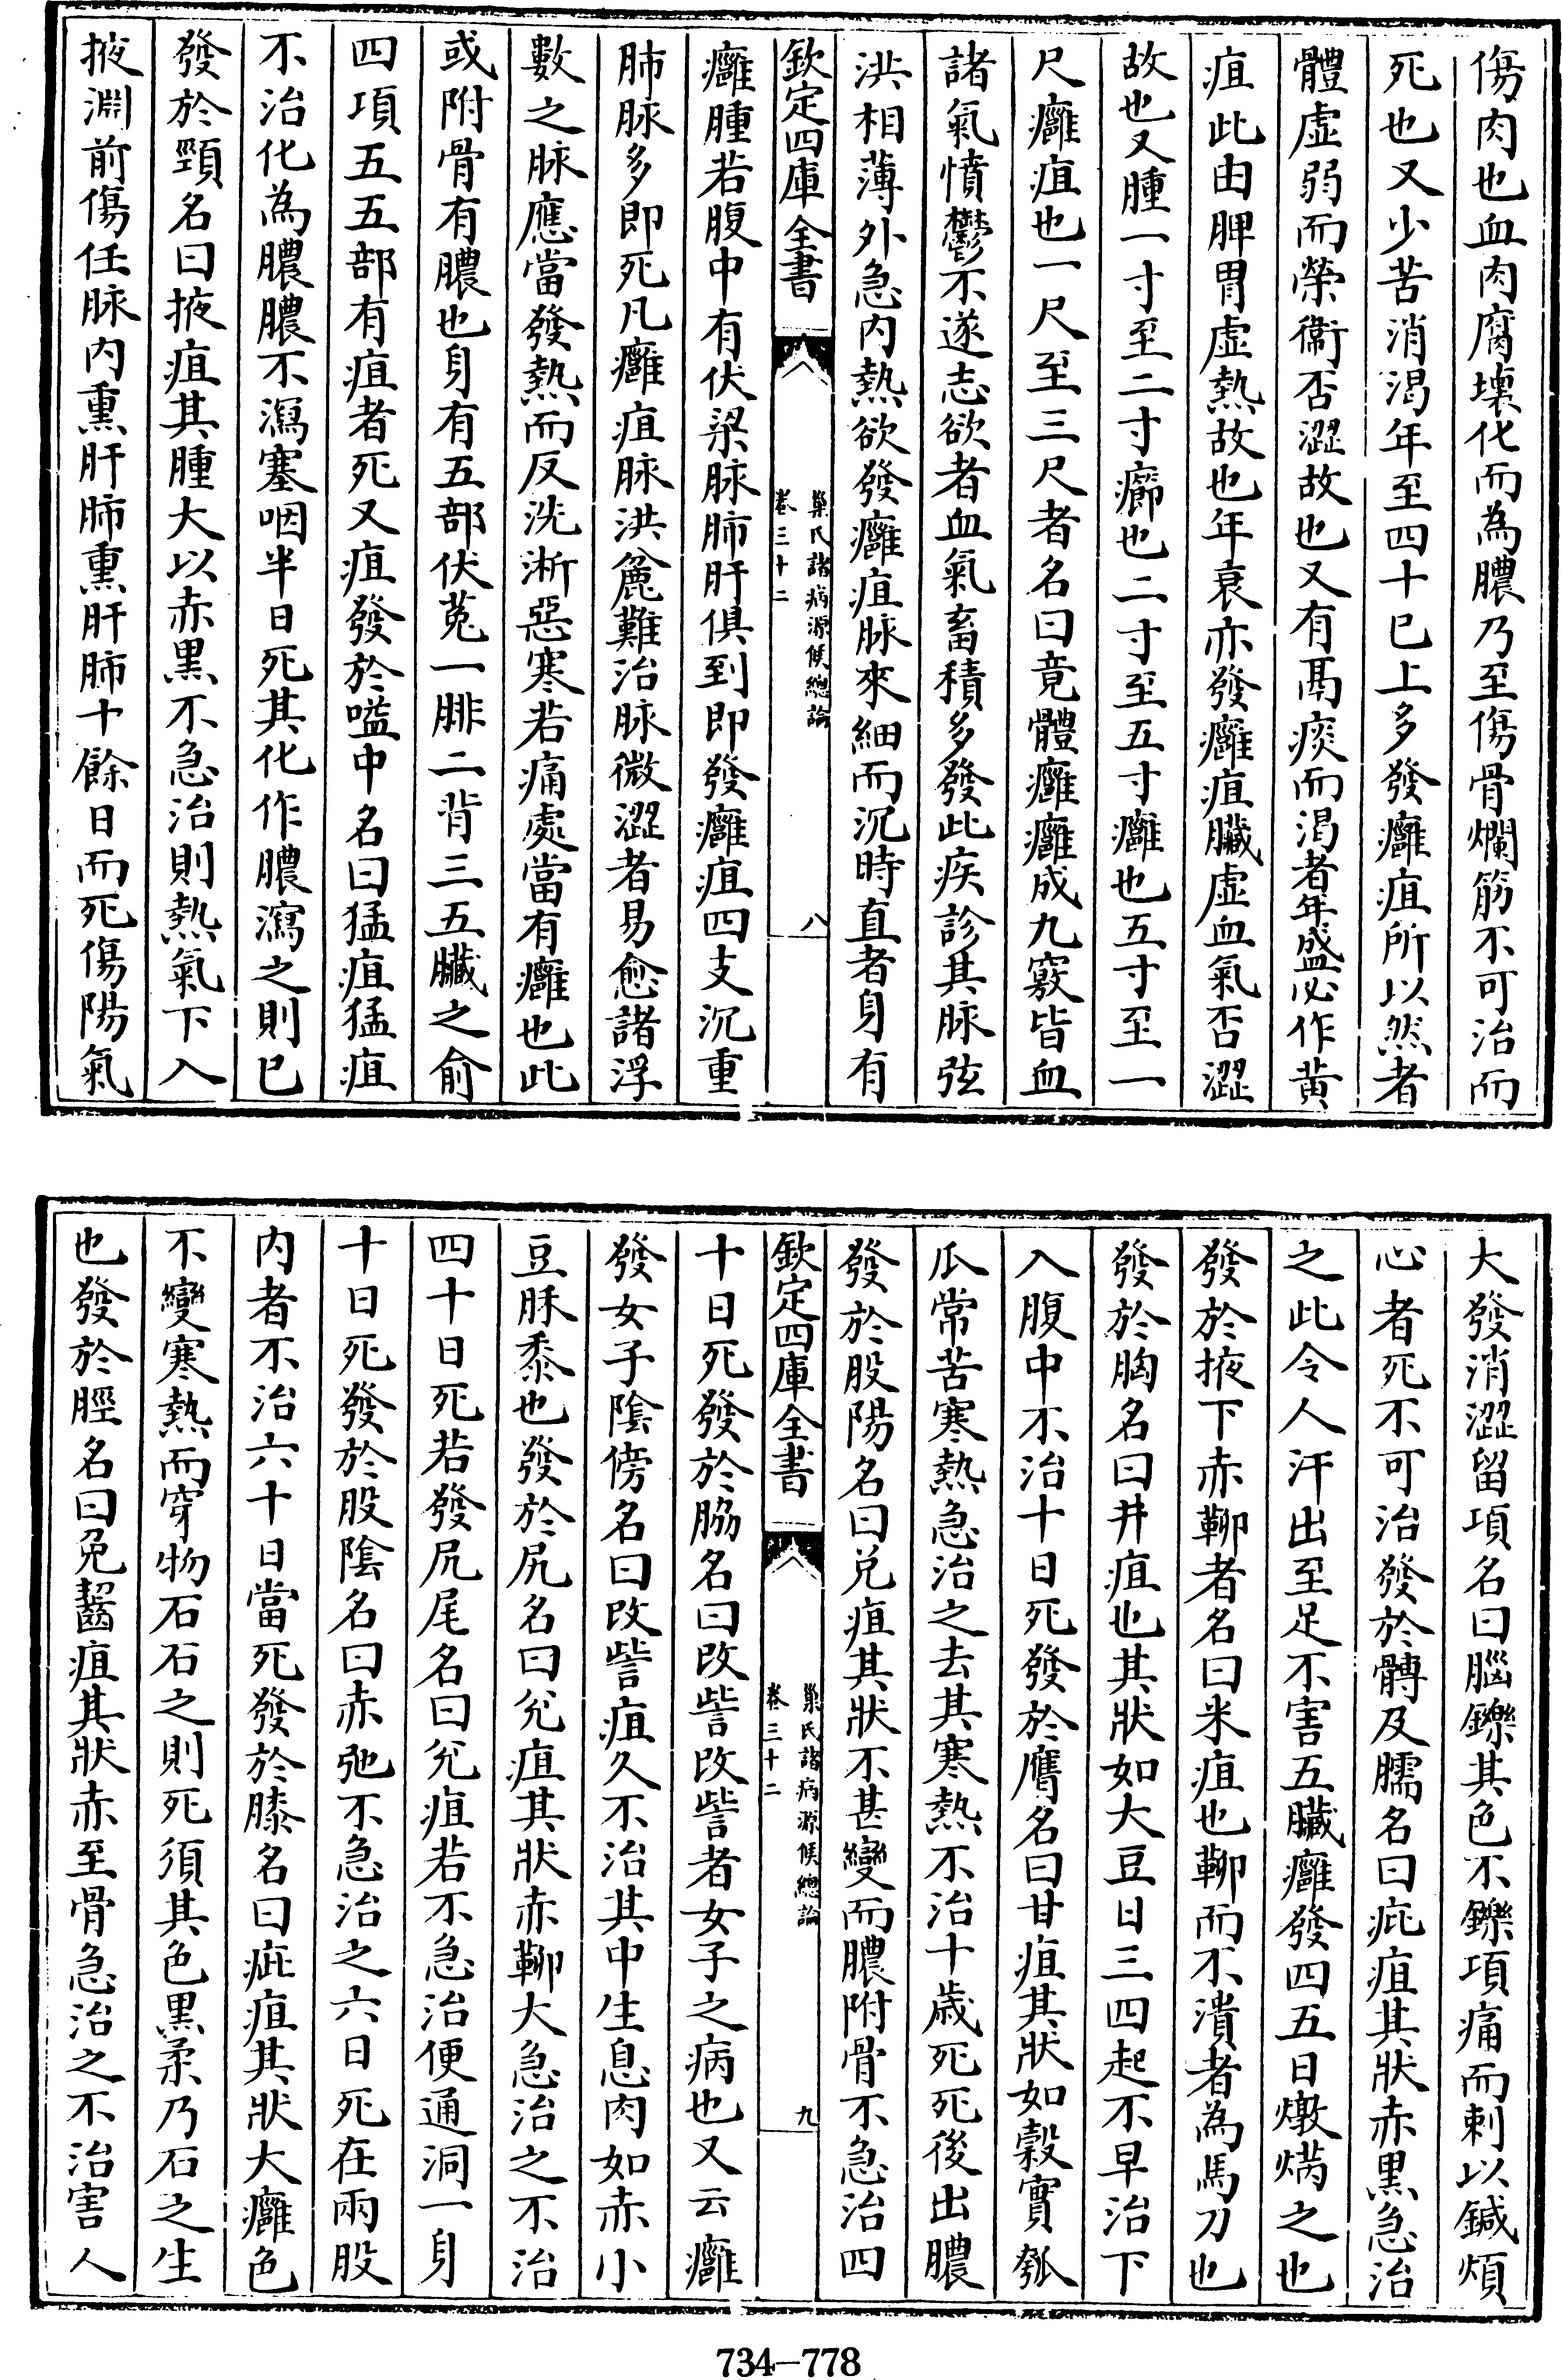 傷肉也血肉腐壞化而為膿乃至傷骨爛筋不可治而
死也又少苦消渴年至四十已上多發癰疽所以然者
體虛弱而榮衛否澀故也又有鬲痰而渴者年盛必作黃
疸此由脾胃虛熱故也年衰亦發癰疽臟虛血氣否澀
故也又腫一寸至二寸癤也二寸至五寸癰也五寸至一
尺癰疽也一尺至三尺者名曰竟體癰癰成九竅皆血
諸氣憤鬱不遂志欲者血氣畜積多發此疾診其脉弦
洪相薄外急内熱欲發癰疽脉來細而沉時直者身有
欽定四庫全書
巢氏諸病源候總論
卷三十二
八
癰腫若腹中有伏梁脉肺肝俱到即發癰疽四支沉重
肺脉多即死凡癰疽脉洪麄難治脉微澀者易愈諸浮
數之脉應當發熱而反洗淅惡寒若痛處當有癰也此
或附骨有膿也身有五部伏菟一腓二背三五臟之俞
四項五五部有疽者死又疽發於嗌中名曰猛疽猛疽
不治化為膿膿不瀉塞咽半日死其化作膿瀉之則已
發於頸名曰掖疽其腫大以赤黑不急治則熱氣下入
掖淵前傷任脉内熏肝肺熏肝肺十餘日而死傷陽氣
大發消澀留項名曰腦鑠其色不鑠項痛而刺以鍼煩
心者死不可治發於髆及臑名曰疪疽其狀赤黑急治
之此令人汗出至足不害五臟癰發四五日燉焫之也
發於掖下赤鞕者名曰米疽也鞕而不潰者為馬刀也
發於胸名曰井疽也其狀如大豆日三四起不早治下
入腹中不治十日死發於膺名曰甘疽其狀如穀實瓠
瓜常苦寒熱急治之去其寒熱不治十歲死死後出膿
發於股陽名曰兌疽其狀不甚變而膿附骨不急治四
欽定四庫全書
巢氏諸病源候總論
卷三十二
九
十日死發於脇名曰改訾改訾者女子之病也又云癰
發女子陰傍名曰改訾疽久不治其中生息肉如赤小
豆䅽黍也發於尻名曰兊疽其狀赤鞕大急治之不治
四十日死若發尻尾名曰兊疽若不急治便通洞一身
十日死發於股陰名曰赤弛不急治之六日死在兩股
内者不治六十日當死發於膝名曰疵疽其狀大癰色
不變寒熱而穿物石石之則死須其色黑柔乃石之生
也發於脛名曰兔齧疽其狀赤至骨急治之不治害人
734-778